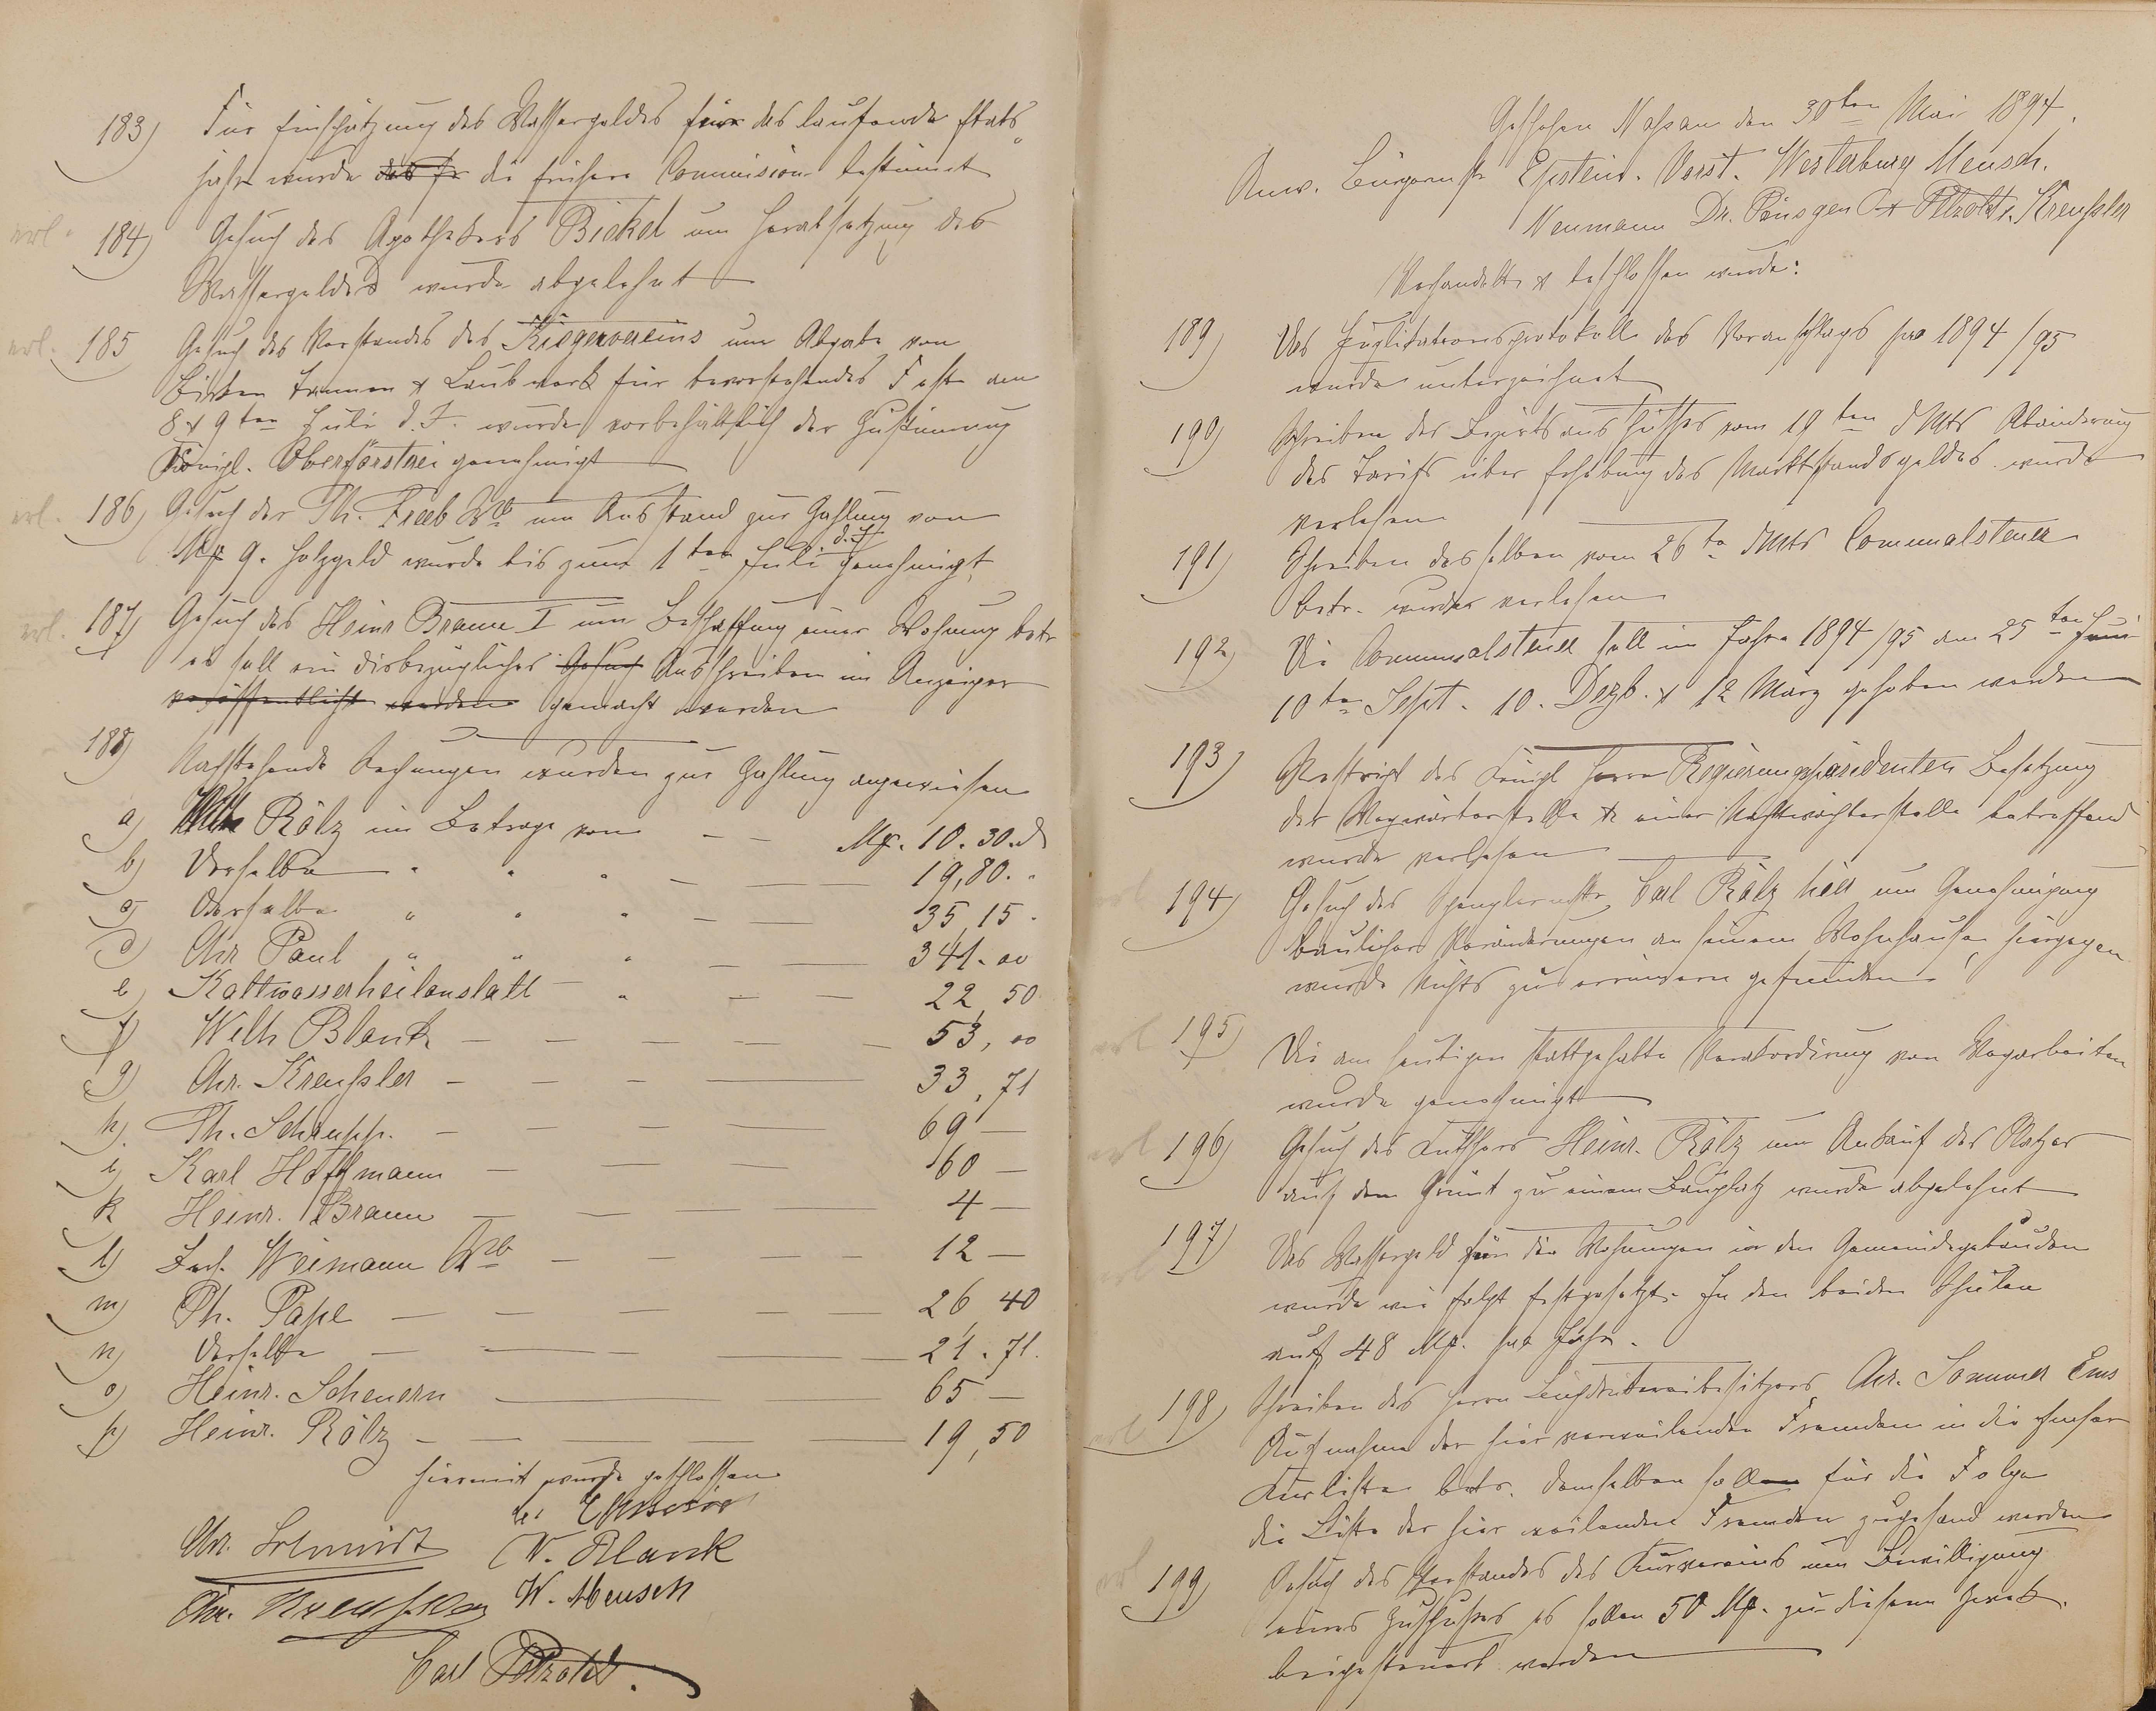 183) Für Einschätzung des Wassergeldes für das laufende Etats-
jahr wurde die frühere Commission bestimmt
erl. 184) Gesuch des Apothekers Bickel um Herabsetzung des
Wassergeldes wurde abgelehnt
erl. 185 Gesuch des Vorstandes des Kriegervereins um Abgabe von
Birken Tannen & Laubwerk für bevorstehendes Fest am
8 & 9ten Juli d. J. wurde vorbehältlich der Zustimmung
Königl. Oberförsterei genehmigt
erl. 186) Gesuch der Ph. Wb um Ausstand zur Zahlung von
Mk 9. Holzgeld wurde bis zum 1ten Juli d. J. genehmigt
erl. 187) Gesuch des Heinr Braun I um Beschaffung einer Wohnung betr
es soll ein diesbezügliches Gesuch Ausschreiben im Anzeiger
veröffentlicht werden gemacht werden
188) Nachstehende Rechnungen wurden zur Zahlung angewiesen
a) Wilh Rölz im Betrage von — — Mk. 10. 30. d
b) Derselbe " " " — — 19,80. "
c) Derselbe " " " — — 35,15 "
d) Chr Paul " " " — — 341. 00
e) Kaltwasserheilanstalt — " — — 22,50
f) Wilh Blank — — — — — 53,00
g) Chr. Kreußler — — — — 33,71
h) Ph. Schrupp. — — — — 69 —
i) Karl Hoffmann — — — 60 —
k Heinr. Braun — — — — 4 —
l) Weimann Wb — — — — 12 —
m) Ph. Pape — — — — — 26,40
n) Derselbe — — — — 21. 71.
o) Heinr. Scheuern — — 65 —
p) Heinr. Rölz — — — — 19,50
Hiermit wurde geschlossen
Chr. Schmidt W. Blank
Chr. Kreußler W. Mensch
Carl Petzold.
Geschehen Nassau den 30ten Mai 1894.
Anw. Bürgermstr Epstein. Vorst. Westerburg Mensch.
Neumann Dr. Poensgen & Petzold. Kreußler
Verhandelt & beschlossen wurde:
189) Das protokoll des Voranschlags pro 1894/95
wurde unterzeichnet
190) Schreiben des Bezirksausschusses vom 19ten d Mts Abänderung
des Tarifs über Erhebung des Marktstandsgeldes wurde
verlesen
191) Schreiben desselben vom 26te d Mts Communalsteuer
betr. wurde verlesen
192) Die Communalsteuer soll im Jahre 1894/95 am 25ten Juni
10ten Sept. 10. Dezb. & 12 März gehoben werden
193) Reskript des Königl Herrn Regierungspräsidenten Besetzung
der Wegwärterstelle & einer Nachtwächterstelle betreffend
wurde verlesen
erl 194) Gesuch des Spenglermstr Carl Rölz hier um Genehmigung
baulicher Veränderungen an seinem Wohnhause, hiergegen
wurde Nichts zu erinnern gefunden
erl 195) Die am heutigen stattgehabte Verakkordirung von Wegarbeiten
wurde genehmigt
erl 196) Gesuch des Kutschers Heinr. Rölz um Ankauf des Platzes
auf dem Grünt zu einem Bauplatz wurde abgelehnt
erl 197) Das Wassergeld für die Wohnungen in den Gemeindegebäuden
wurde wie folgt festgesetzt. In den beiden Schulen
auf 48 Mk. pro Jahr.
erl 198) Schreiben des Herrn Buchdruckereibesitzers Chr. Sommer Ems
Aufnahme der hier verweilenden Fremden in die Emser
Kurliste betr. demselben sollen für die Folge
die Liste der hier weilenden Fremden zugesand werden
erl 199) Gesuch des Vorstandes des Kurvereins um Bewilligung
eines Zuschusses es sollen 50 Mk. zu diesem Zweck
beigesteuert werden